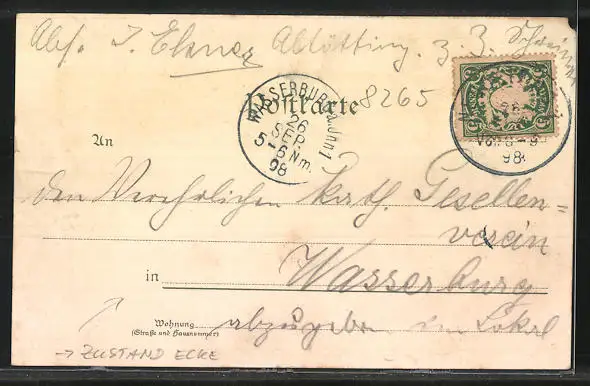 Abs. J. Elsner Altötting. z. Z.
Postkarte
8265
WASSERBURG a. Inn 1
26
SEP.
5-6 Nm.
98
Vor. 8-9
98
An
den Verehrlichen kath. Gesellen=
verein
in Wasserburg
Wohnung
(Straße und Hausnummer)
abzugeben im Lokal
→ ZUSTAND ECKE